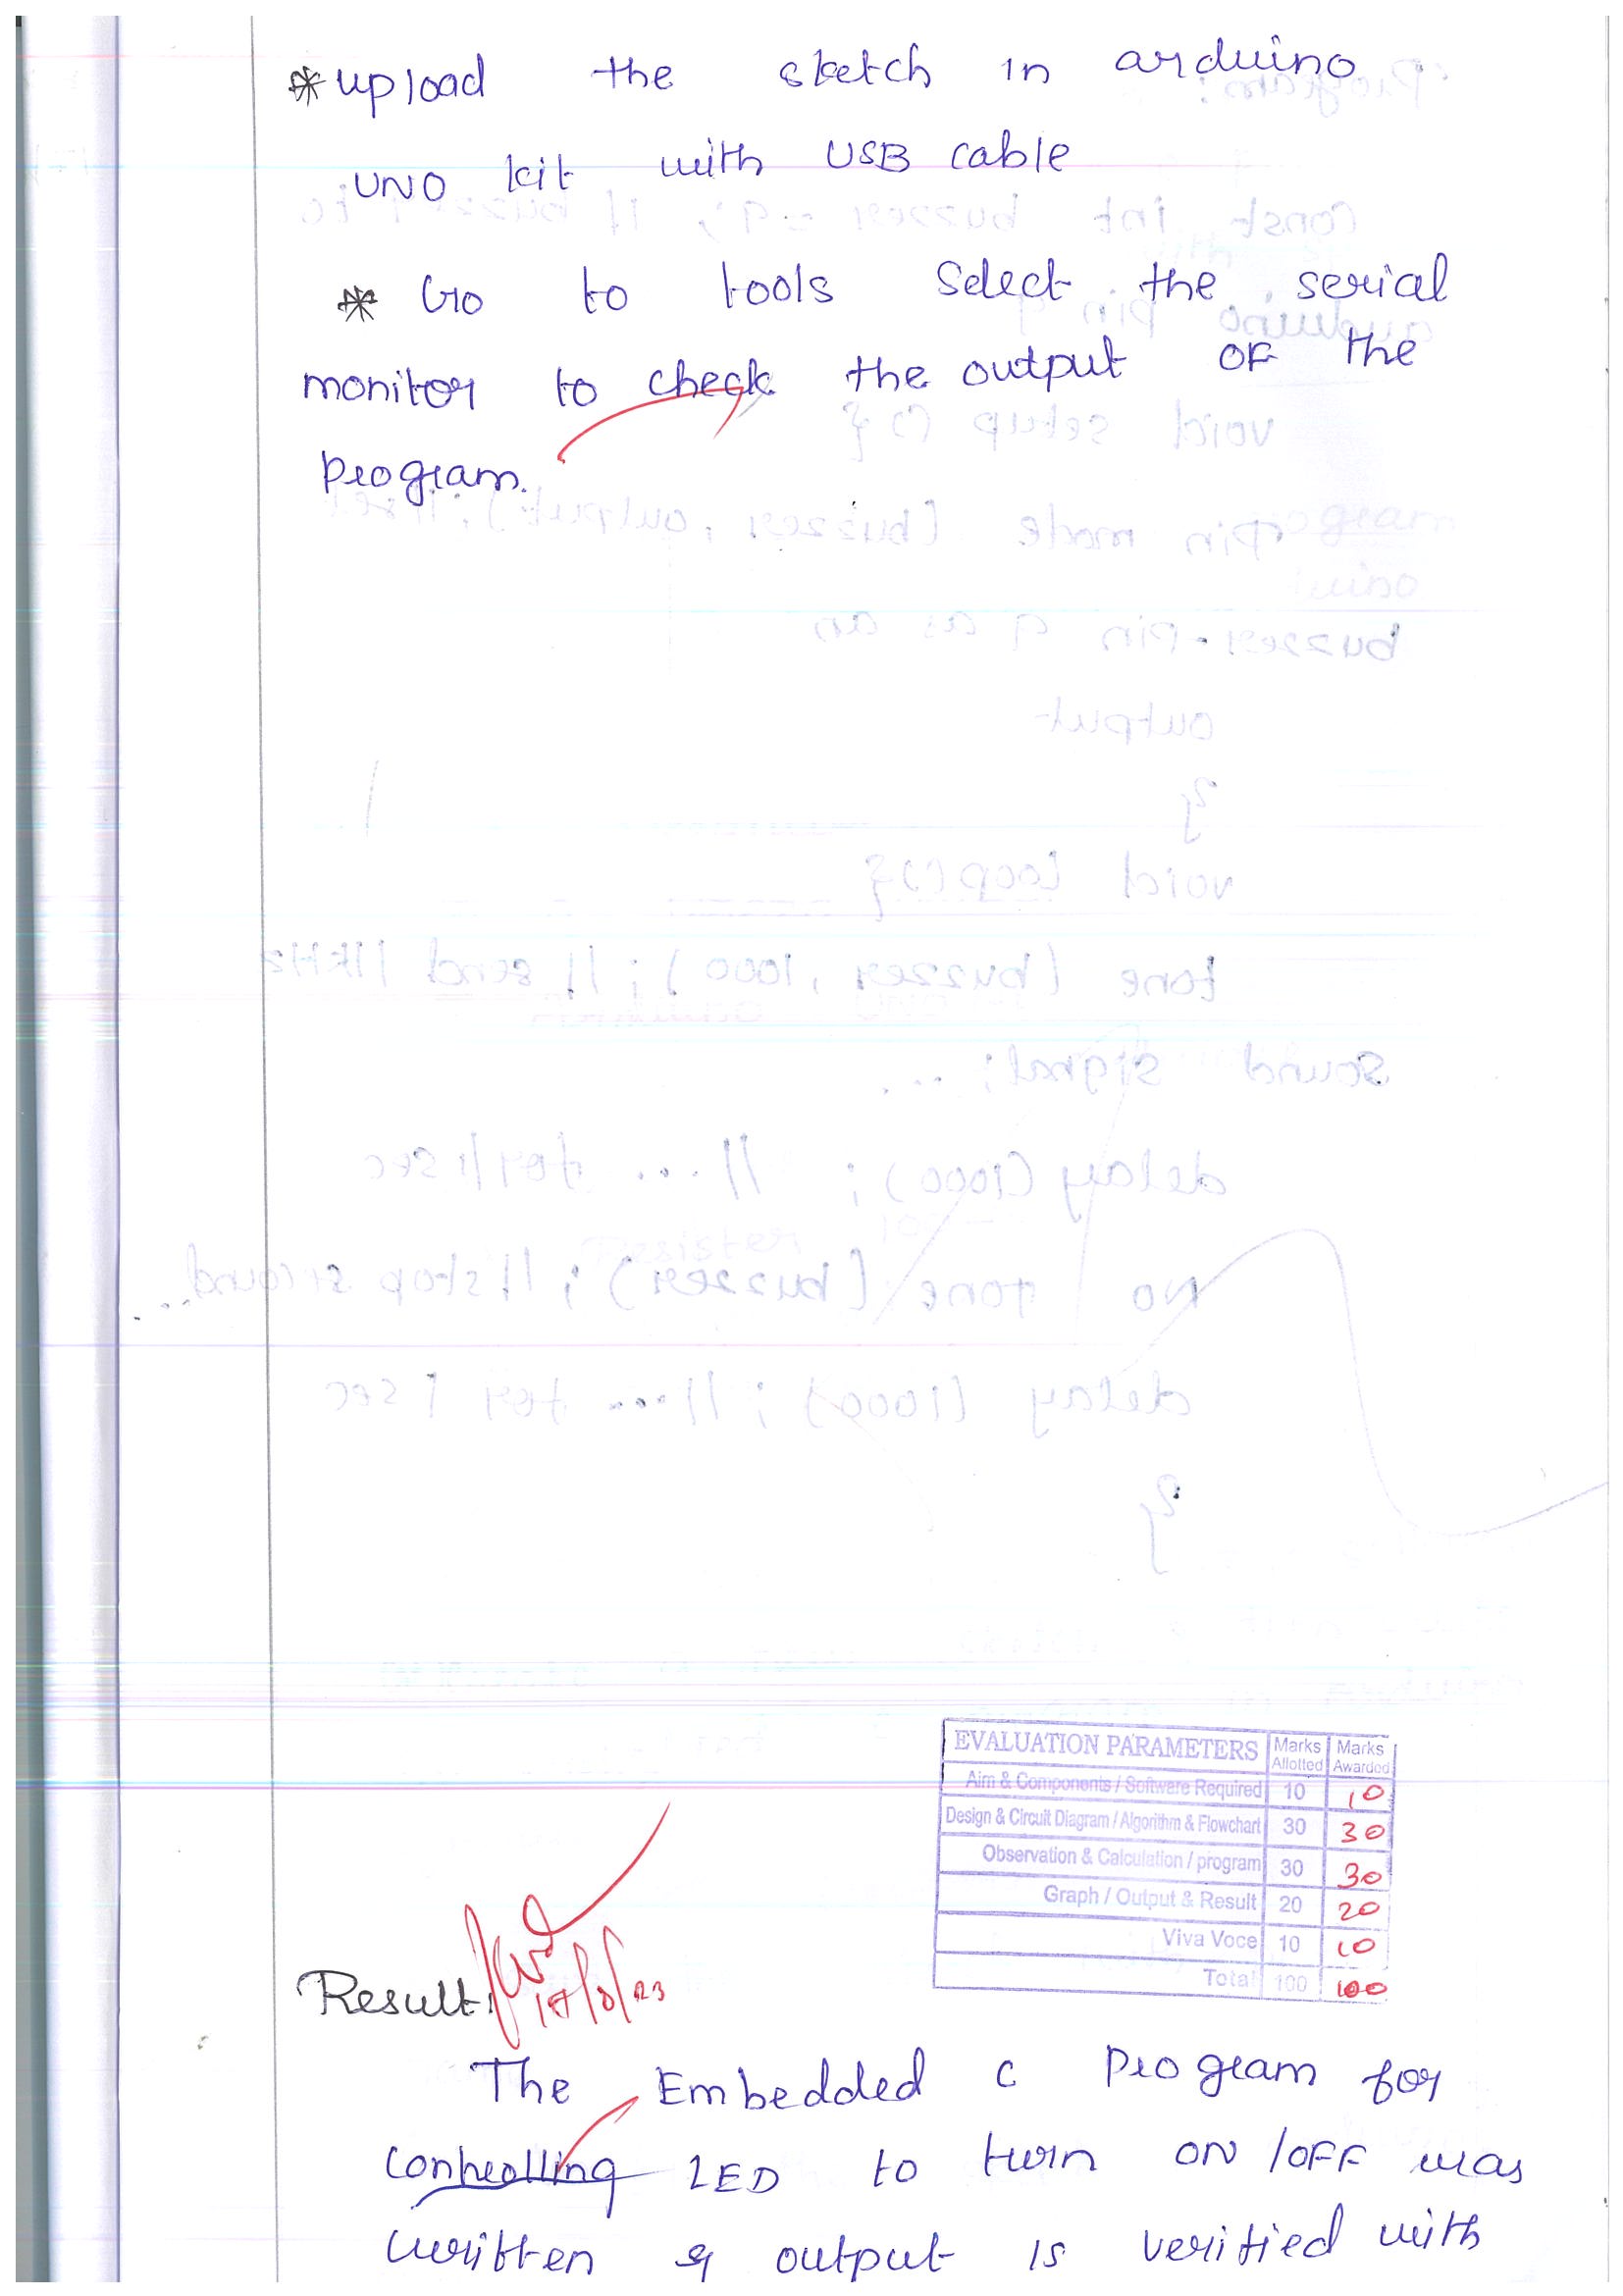 * upload the sketch in arduino
UNO kit with USB cable
* Go to tools select the serial
monitor to check the output OF the
program.
EVALUATION PARAMETERS Marks Allotted Marks Awarded
Aim & Components / Software Required 10 10
Design & Circuit Diagram / Algorithm & Flowchart 30 30
Observation & Calculation / program 30 30
Graph / Output & Result 20 20
Viva Voce 10 10
Total 100 100
Result:
The Embedded C program for
controlling LED to turn ON / OFF was
written & output is verified with